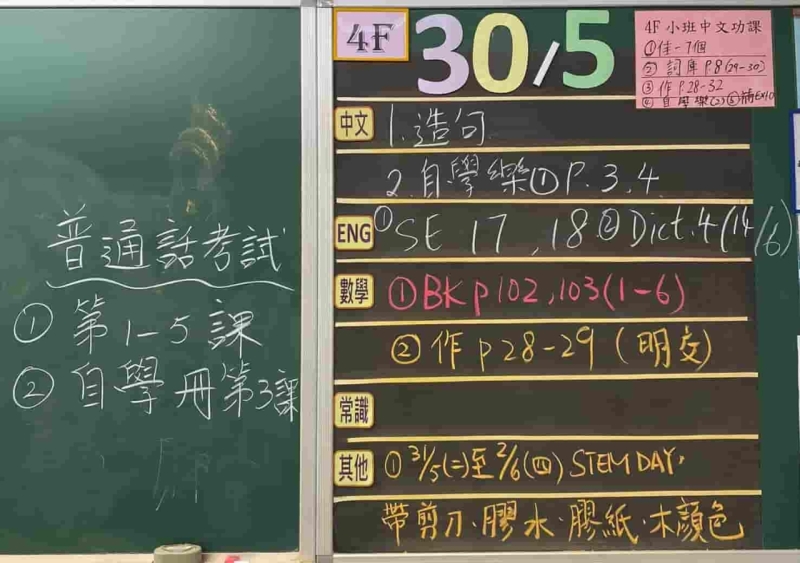 普通話考試
① 第1-5課
② 自學冊第3課
4F
30/5
4F小班中文功課
①佳-7個
② 詞庫 P.8(29-30)
③ 作 P.28-32
④ 自學樂(2) ⑤ 補EX10
中文 1. 造句
2. 自學樂① P. 3, 4
ENG ① SE 17, 18 ② Dict. 4 (14/6)
數學 ① BK p102, 103 (1-6)
② 作 p28-29 (明交)
常識
其他 ① 31/5(二)至2/6(四) STEM DAY,
帶剪刀、膠水、膠紙、木顏色